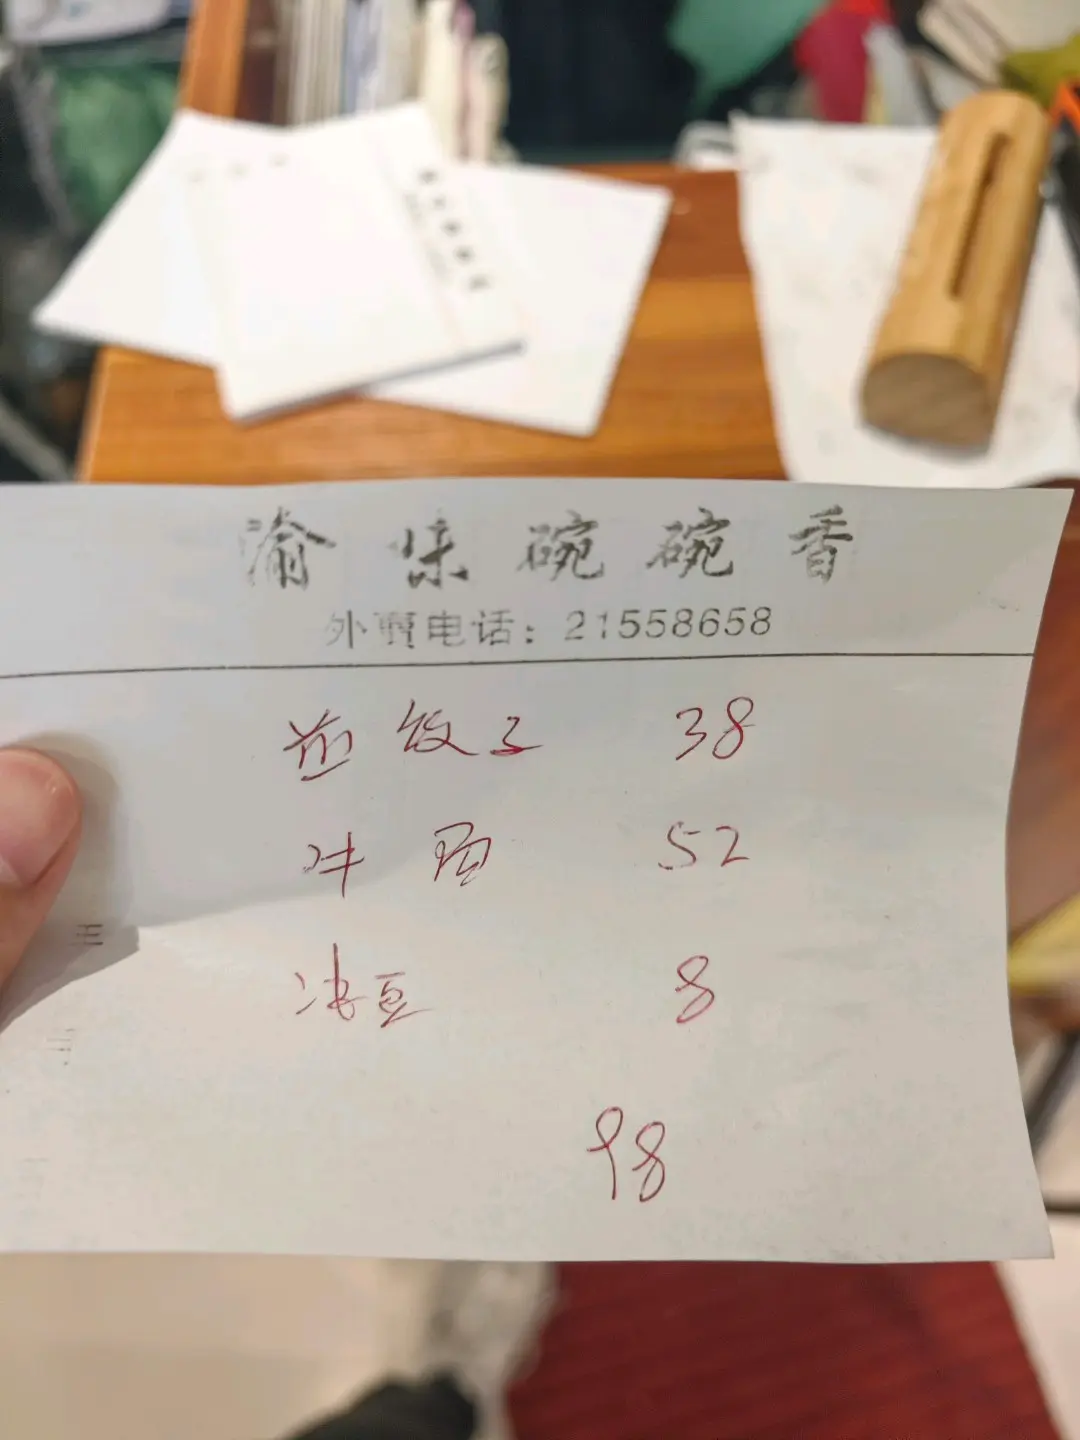 渝味碗碗香
外卖电话：21558658
煎饺子 38
52
冻豆 8
98